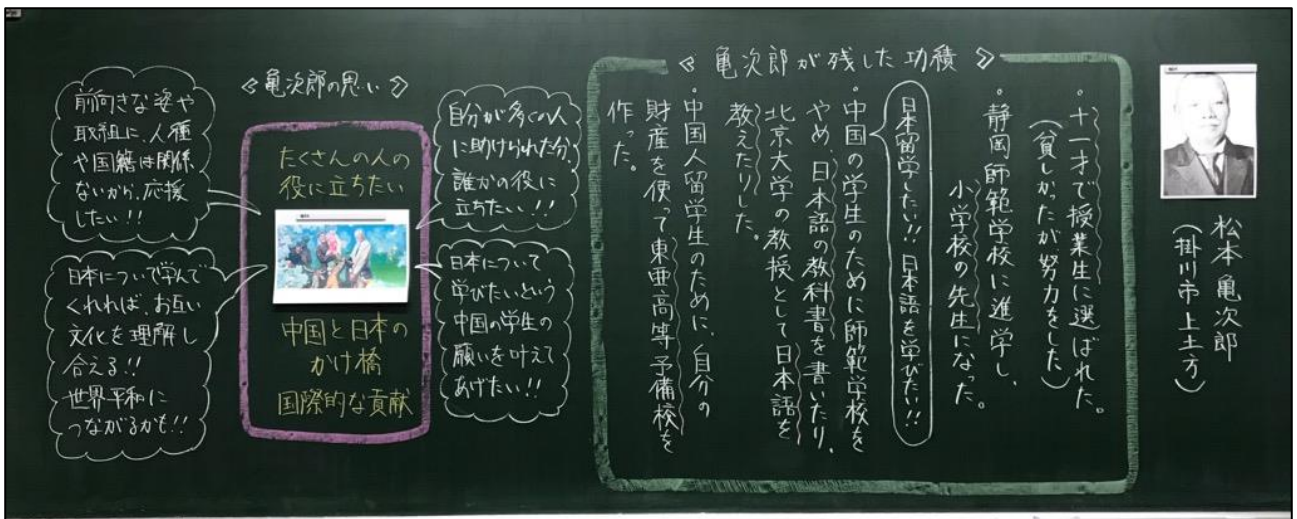 松本亀次郎
(掛川市上土方)
≪亀次郎が残した功績≫
・十一才で授業生に選ばれた。
(貧しかったが努力をした)
・静岡師範学校に進学し、
小学校の先生になった。
日本留学したい!!日本語を学びたい!!
・中国の学生のために師範学校を
やめ、日本語の教科書を書いたり、
北京大学の教授として日本語を
教えたりした。
・中国人留学生のために、自分の
財産を使って東亜高等予備校を
作った。
≪亀次郎の思い≫
自分が多くの人
に助けられた分、
誰かの役に
立ちたい!!
日本について
学びたいという
中国の学生の
願いを叶えて
あげたい!!
たくさんの人の
役に立ちたい
中国と日本の
かけ橋
国際的な貢献
前向きな姿や
取組に、人種
や国籍は関係
ないから、応援
したい!!
日本について学んで
くれれば、お互い
文化を理解し
合える!!
世界平和に
つながるかも!!